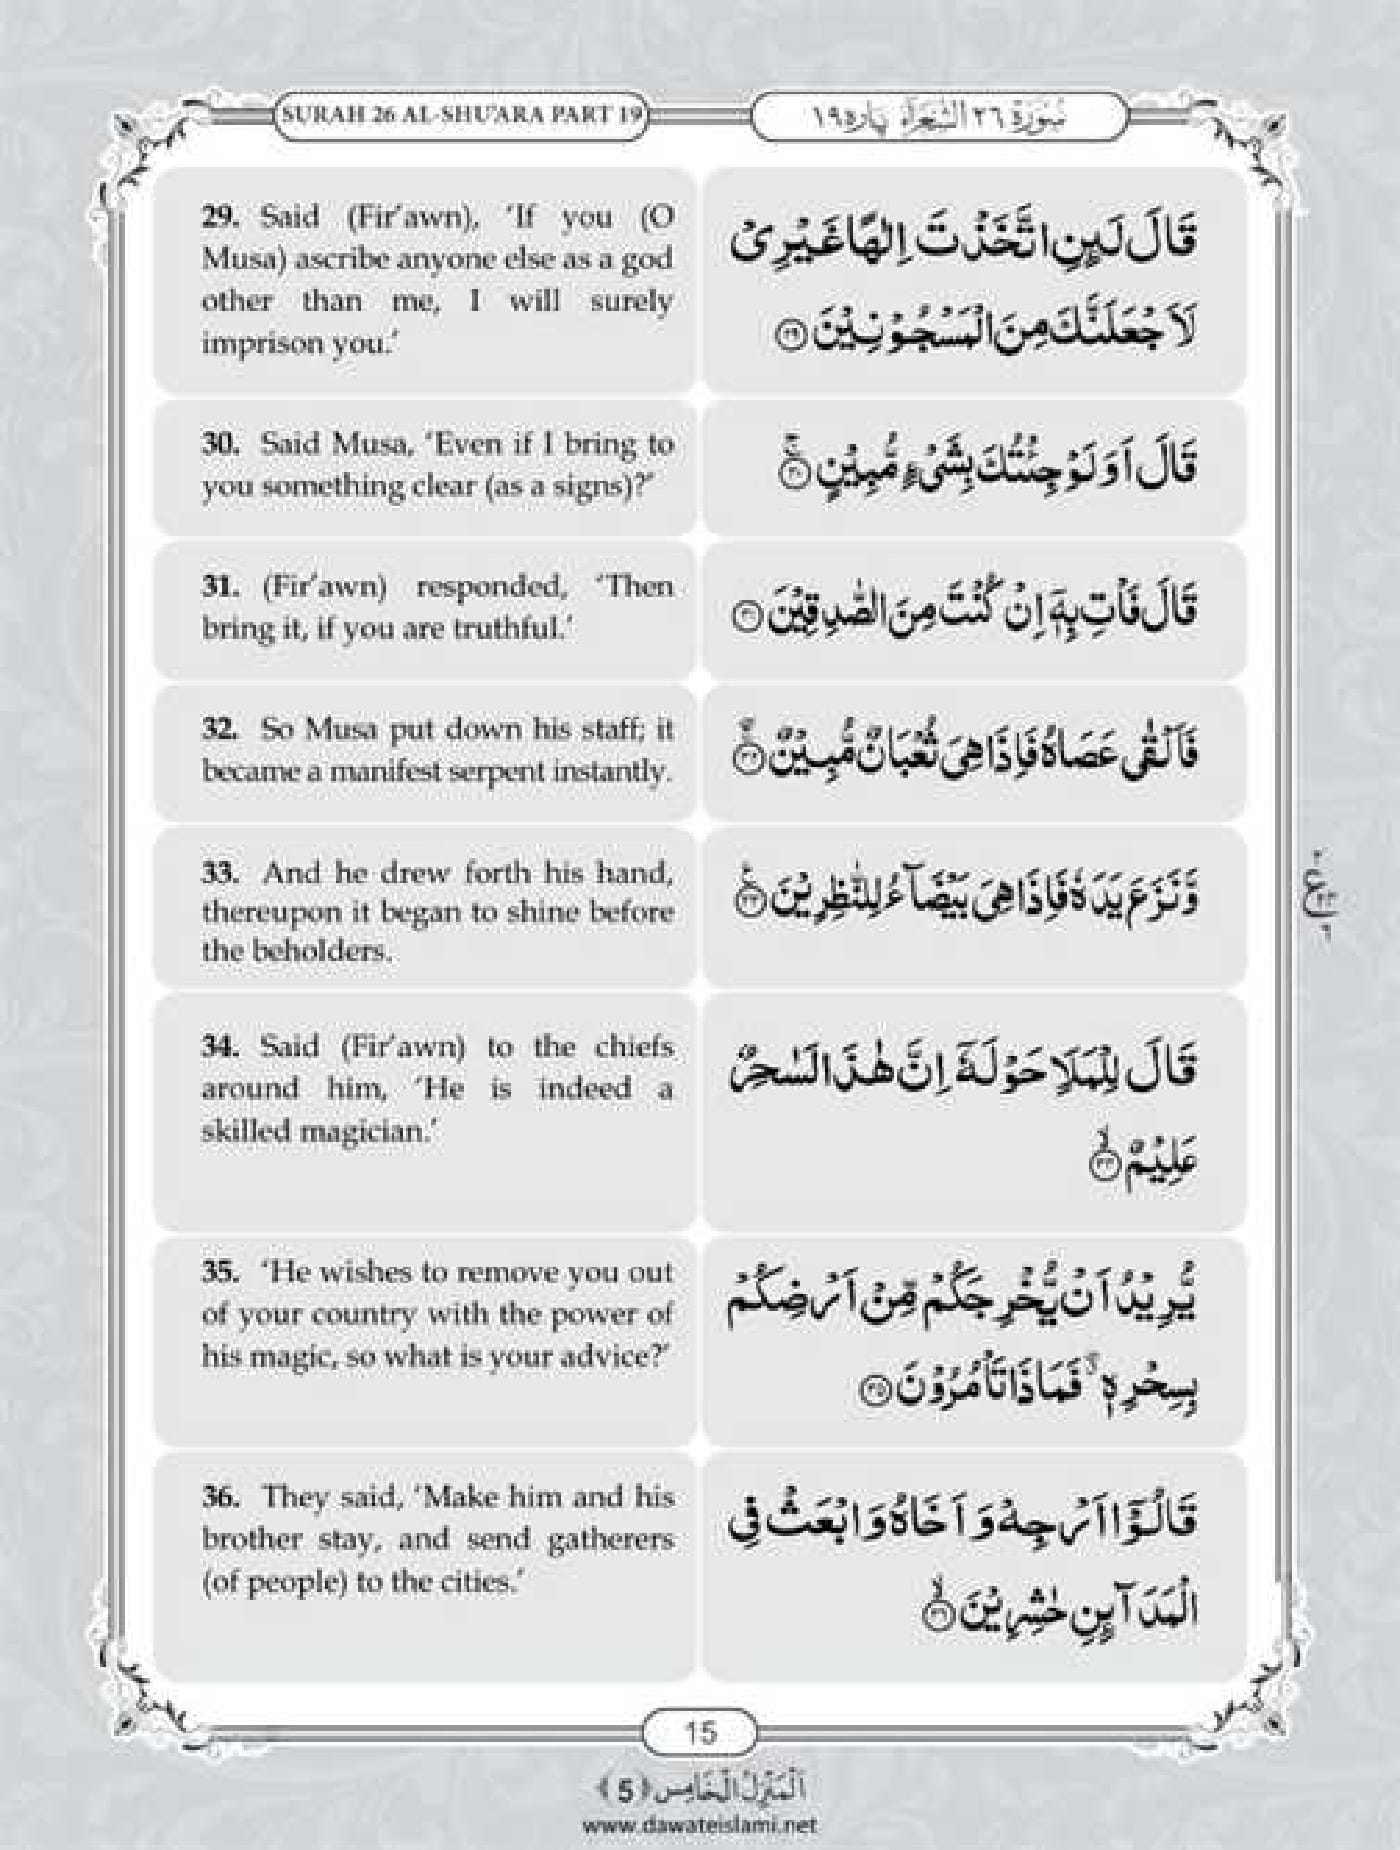 SURAH 26 AL-SHU'ARA PART 19
سُوْرَةُ ٢٦ الشُّعَرَآءِ پاره١٩
29. Said (Fir'awn), 'If you (O
Musa) ascribe anyone else as a god
other than me, I will surely
imprison you.'
قَالَ لَىِٕنِ اتَّخَذْتَ اِلٰهًا غَيْرِىْ
لَاَجْعَلَنَّكَ مِنَ الْمَسْجُوْنِيْنَ ﴿۲۹﴾
30. Said Musa, 'Even if I bring to
you something clear (as a signs)?'
قَالَ اَوَلَوْ جِئْتُكَ بِشَىْءٍ مُّبِيْنٍ ﴿۳۰﴾ۚ
31. (Fir'awn) responded, 'Then
bring it, if you are truthful.'
قَالَ فَاْتِ بِهٖۤ اِنْ كُنْتَ مِنَ الصّٰدِقِيْنَ ﴿۳۱﴾
32. So Musa put down his staff; it
became a manifest serpent instantly.
فَاَلْقٰى عَصَاهُ فَاِذَا هِىَ ثُعْبَانٌ مُّبِيْنٌ ﴿۳۲﴾ۚۖ
33. And he drew forth his hand,
thereupon it began to shine before
the beholders.
وَّنَزَعَ يَدَهٗ فَاِذَا هِىَ بَيْضَآءُ لِلنّٰظِرِيْنَ ﴿۳۳﴾
34. Said (Fir'awn) to the chiefs
around him, 'He is indeed a
skilled magician.'
قَالَ لِلْمَلَاِ حَوْلَهٗۤ اِنَّ هٰذَا لَسٰحِرٌ
عَلِيْمٌ ﴿۳۴﴾ۙ
35. 'He wishes to remove you out
of your country with the power of
his magic, so what is your advice?'
يُّرِيْدُ اَنْ يُّخْرِجَكُمْ مِّنْ اَرْضِكُمْ
بِسِحْرِهٖ ۖۗ فَمَاذَا تَاْمُرُوْنَ ﴿۳۵﴾
36. They said, 'Make him and his
brother stay, and send gatherers
(of people) to the cities.'
قَالُوْۤا اَرْجِهْ وَ اَخَاهُ وَ ابْعَثْ فِى
الْمَدَآىِٕنِ حٰشِرِيْنَ ﴿۳۶﴾ۙ
15
اَلْمَنْزِلُ الْخَامِس ﴿5﴾
www.dawateislami.net